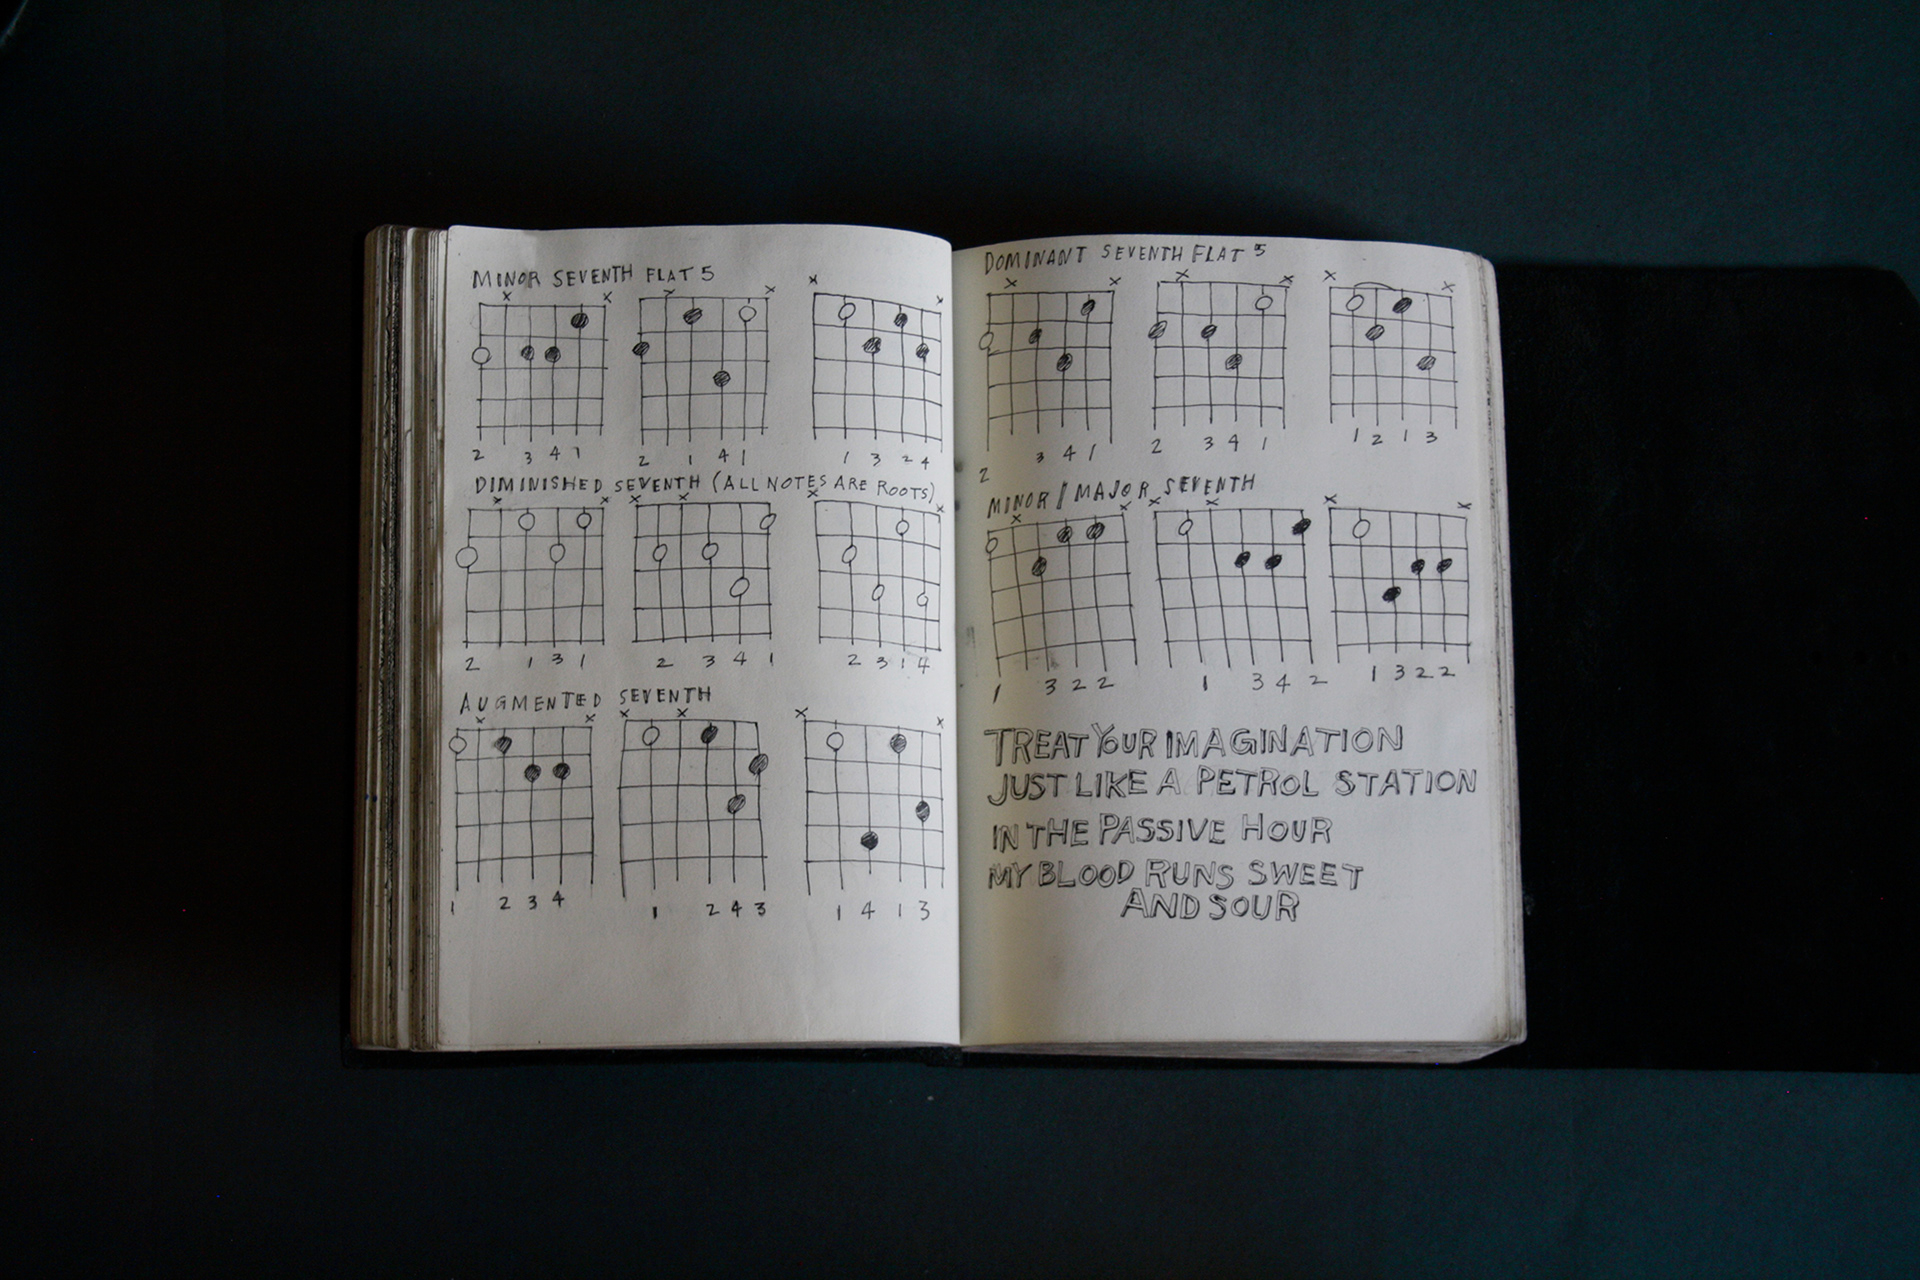 MINOR SEVENTH FLAT 5
x x x x x x
2 3 4 1 2 1 4 1 1 3 2 4
DIMINISHED SEVENTH (ALL NOTES ARE ROOTS)
x x x x x x
2 1 3 1 2 3 4 1 2 3 1 4
AUGMENTED SEVENTH
x x x x x x
1 2 3 4 1 2 4 3 1 4 1 3
DOMINANT SEVENTH FLAT 5
x x x x x x
2 3 4 1 2 3 4 1 1 2 1 3
MINOR / MAJOR SEVENTH
x x x x x x
1 3 2 2 1 3 4 2 1 3 2 2
TREAT YOUR IMAGINATION
JUST LIKE A PETROL STATION
IN THE PASSIVE HOUR
MY BLOOD RUNS SWEET
AND SOUR